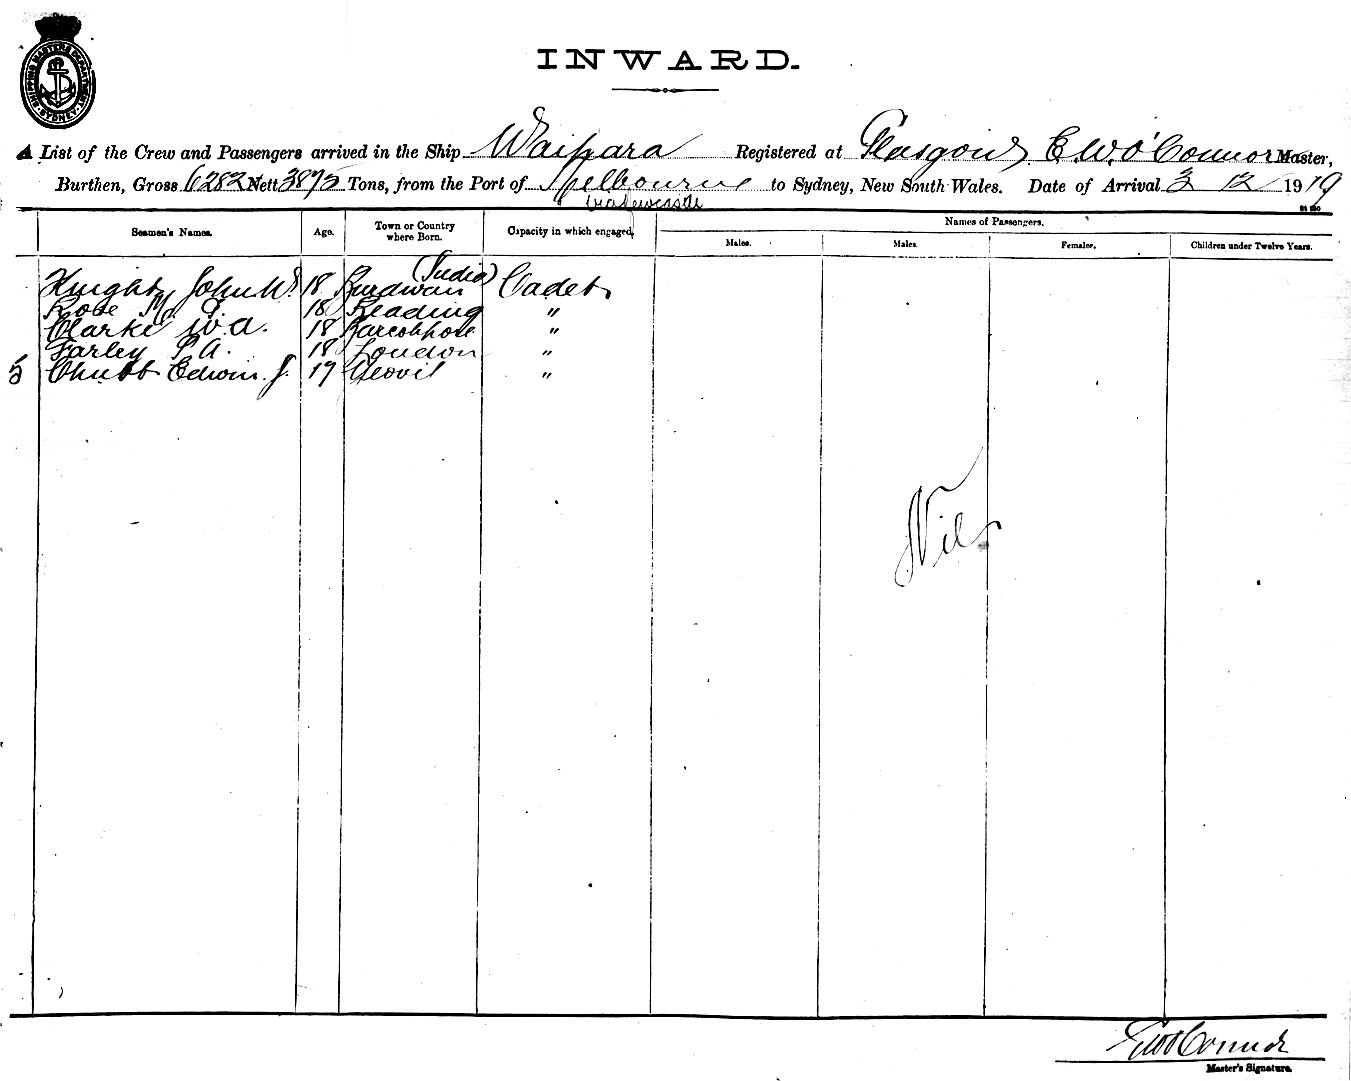 SHIPPING MASTERS DEPARTMENT SYDNEY
INWARD.
A List of the Crew and Passengers arrived in the Ship Waipara Registered at Glasgow E. W. O'Connor Master,
Burthen, Gross 6282 Nett 3875 Tons, from the Port of Melbourne to Sydney, New South Wales. Date of Arrival 3 12 1919
via Newcastle
Seamen's Names. Age. Town or Country where Born. Capacity in which engaged. Names of Passengers.
Males. Males. Females. Children under Twelve Years.
Knight John W. 18 Burdwan (India) Cadet
Rose 18 Reading "
Clarke W. A. 18 "
Farley P A. 18 London "
5 Chubb Edwin J. 17 Yeovil "
Nil
E W O'Connor
Master's Signature.